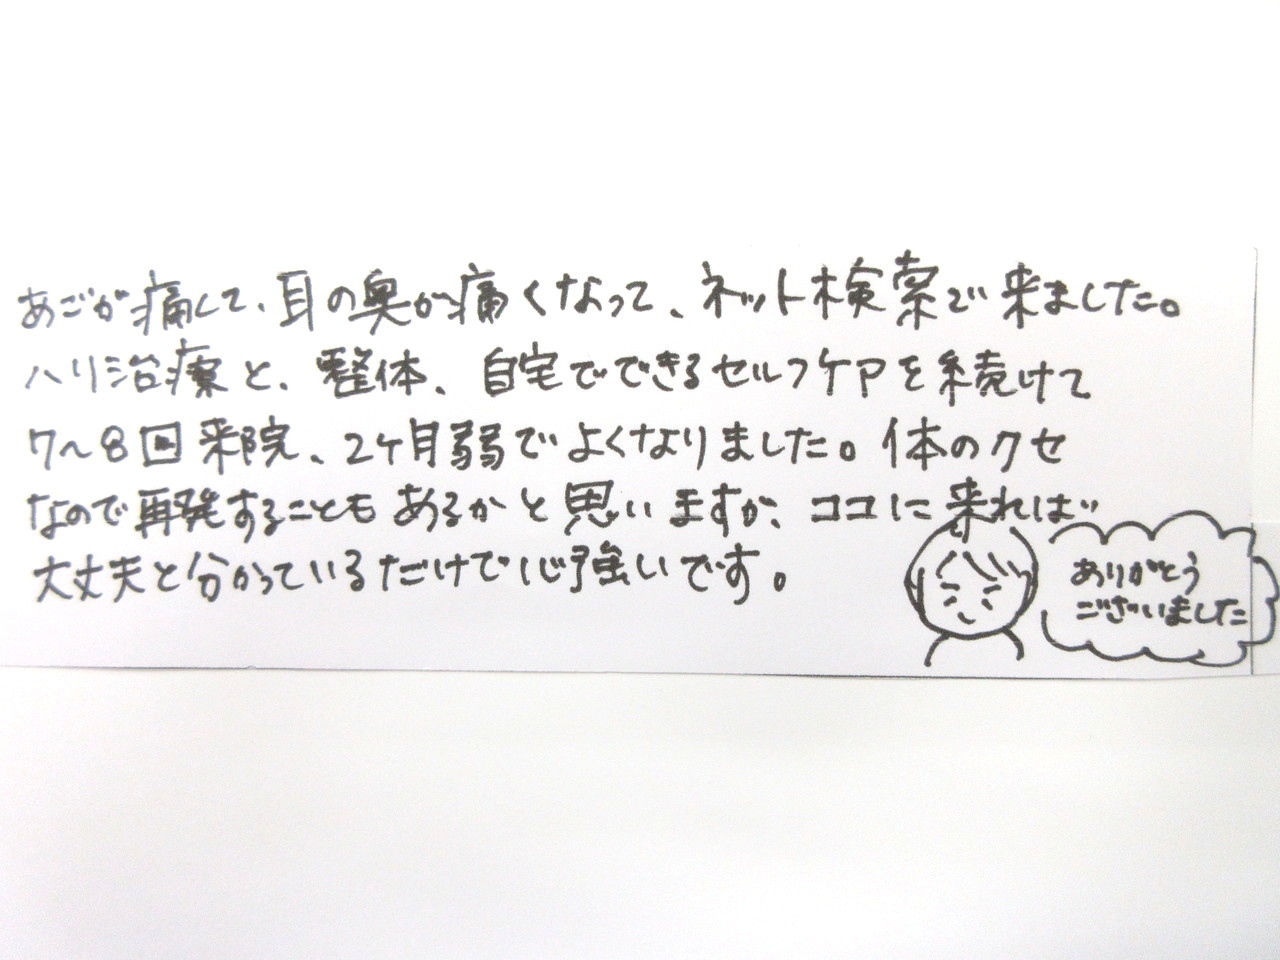 あごが痛して、耳の奥が痛くなって、ネット検索で来ました。
ハリ治療と、整体、自宅でできるセルフケアを続けて
7～8回来院、2ヶ月弱でよくなりました。体のクセ
なので再発することもあるかと思いますが、ココに来れば
大丈夫と分かっているだけで心強いです。
ありがとう
ございました